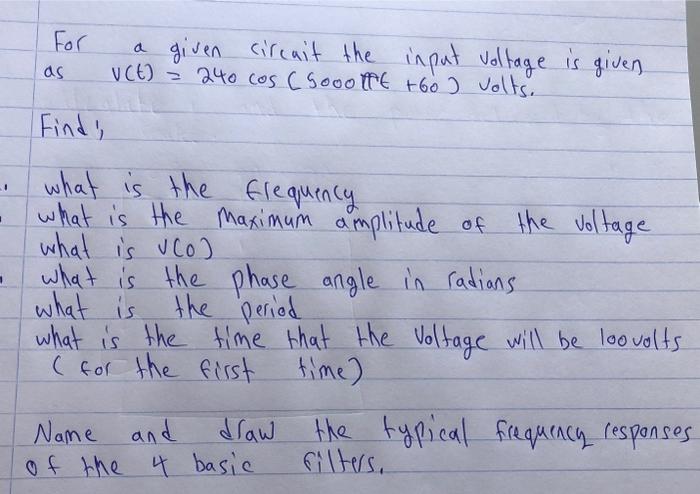 For a given circuit the input voltage is given
as v(t) = 240 cos (5000πt +60) volts.
Find;
what is the frequency
what is the maximum amplitude of the voltage
what is v(0)
what is the phase angle in radians
what is the period
what is the time that the voltage will be 100volts
(for the first time)
Name and draw the typical frequency responses
of the 4 basic filters.